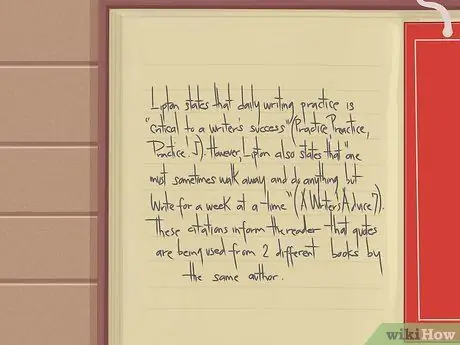 Lipton states that daily writing practice is
"critical to a writer's success" (Practice, Practice,
Practice. 5). However, Lipton also states that "one
must sometimes walk away and do anything but
write for a week at a time" (A Writer's Advice 7).
These citations inform the reader that quotes
are being used from 2 different books by
the same author.
wikiHow